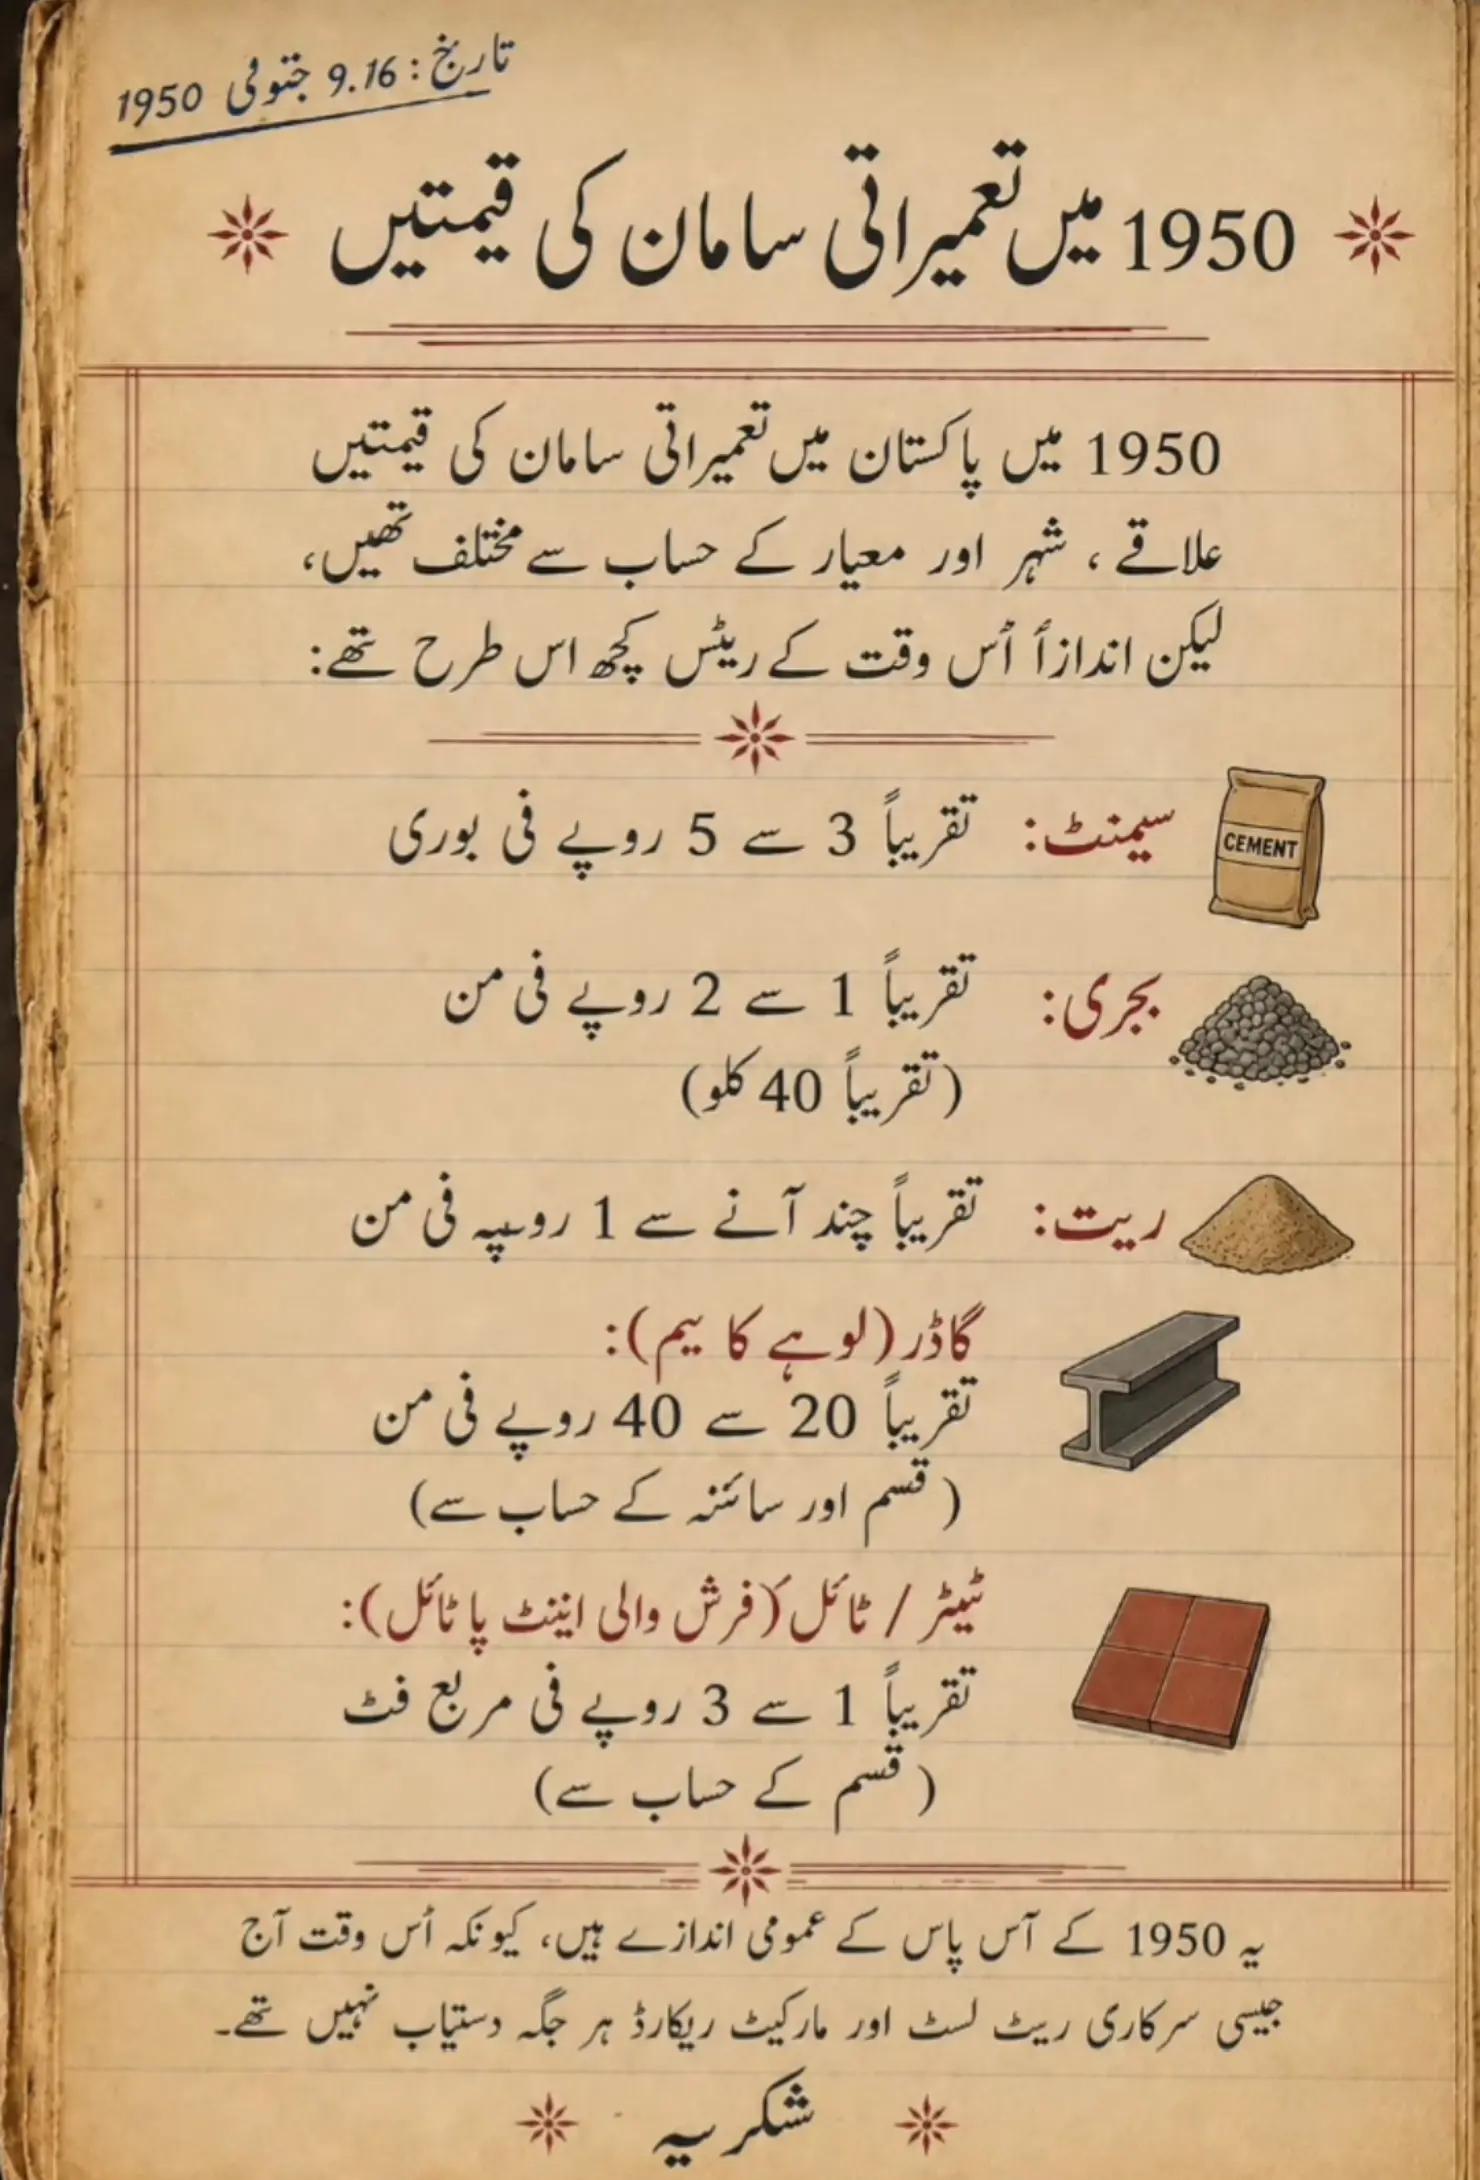 تاریخ: 9.16 جنوفی 1950
1950 میں تعمیراتی سامان کی قیمتیں
1950 میں پاکستان میں تعمیراتی سامان کی قیمتیں
علاقے، شہر اور معیار کے حساب سے مختلف تھیں،
لیکن اندازاً اُس وقت کے ریٹس کچھ اس طرح تھے:
سیمنٹ: تقریباً 3 سے 5 روپے فی بوری
CEMENT
بجری: تقریباً 1 سے 2 روپے فی من
(تقریباً 40 کلو)
ریت: تقریباً چند آنے سے 1 روپیہ فی من
گاڈر (لوہے کا بیم):
تقریباً 20 سے 40 روپے فی من
(قسم اور سائز کے حساب سے)
ٹیٹر / ٹائل (فرش والی اینٹ یا ٹائل):
تقریباً 1 سے 3 روپے فی مربع فٹ
(قسم کے حساب سے)
یہ 1950 کے آس پاس کے عمومی اندازے ہیں، کیونکہ اُس وقت آج
جیسی سرکاری ریٹ لسٹ اور مارکیٹ ریکارڈ ہر جگہ دستیاب نہیں تھے۔
شکریہ